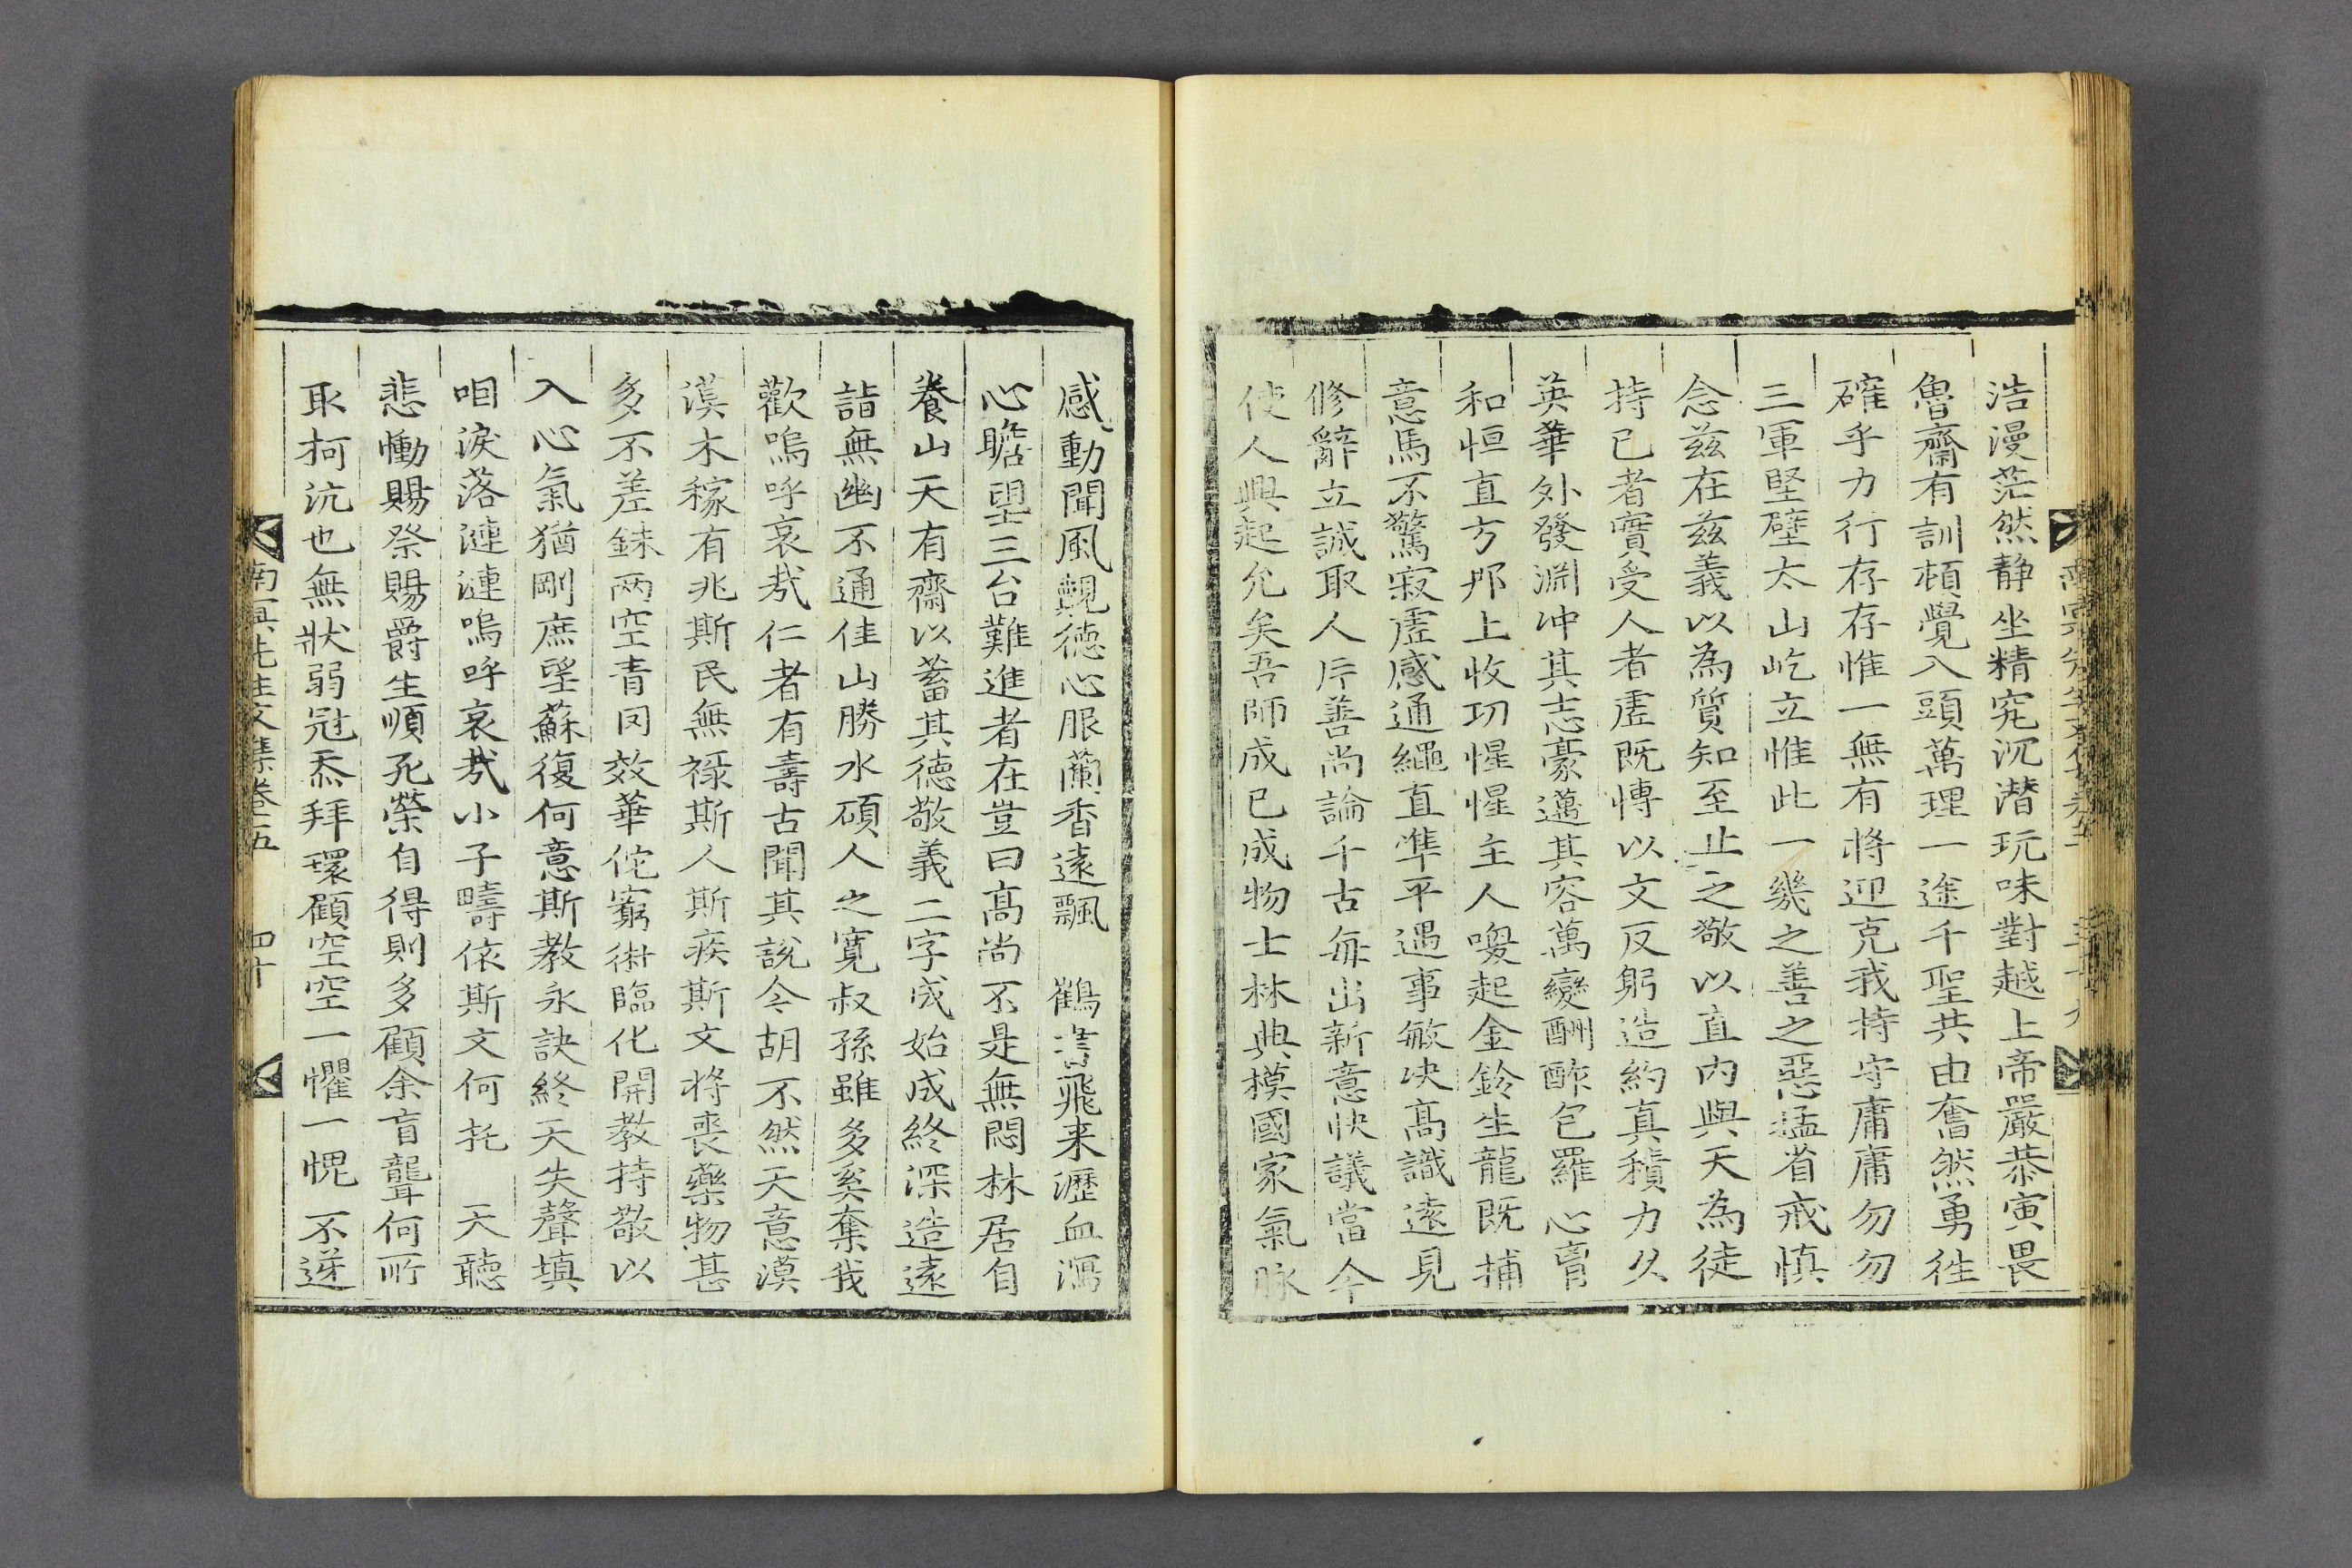 浩漫茫然静坐精究沉潜玩味對越上帝嚴恭寅畏
魯齋有訓頓覺入頭萬理一途千聖共由奮然勇徃
確乎力行存存惟一無有將迎克我持守庸庸勿勿
三軍堅壁太山屹立惟此一幾之善之惡猛省戒慎
念兹在兹義以為質知至止之敬以直內與天為徒
持已者實受人者虛既愽以文反躬造約真積力久
英華外發淵冲其志豪邁其容萬變酬酢包羅心膏
和恒直方邦上收功惺惺主人喚起金鈴生龍既捕
意馬不驚寂虛感通繩直準平遇事敏决髙識遠見
修辭立誠取人片善尚論千古每出新意快議當今
使人興起允矣吾師成已成物士林典模國家氣脉
感動聞風覩徳心服蘭香遠飄 鶴書飛来瀝血瀉
心瞻望三台難進者在豈曰髙尚不是無悶林居自
養山天有齋以蓄其徳敬義二字成始成終深造遠
詣無幽不通佳山勝水碩人之寛叔孫雖多奚奪我
歡嗚呼哀㢤仁者有壽古聞其說今胡不然天意漠
漠木稼有兆斯民無禄斯人斯疾斯文将喪藥物甚
多不差銖两空青罔效華佗窮術臨化開教持敬以
入心氣猶剛庶望蘇復何意斯教永訣終天失聲填
咽淚落漣漣嗚呼哀㢤小子疇依斯文何托 天聽
悲慟賜祭賜爵生順死榮自得則多顧余盲聾何所
取柯沆也無狀弱冠忝拜環顧空空一懼一愧不遂
南冥先生文集卷之五 四十